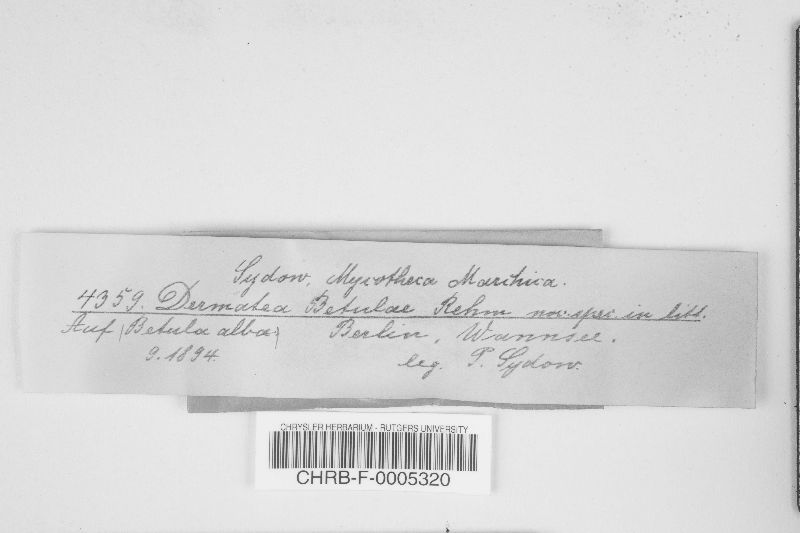 Sydow, Mycotheca Marchica.
4359. Dermatea Betulae Rehm nov. spec. in litt.
Auf (Betula alba) Berlin, Wannsee.
9. 1894. leg. P. Sydow.
CHRYSLER HERBARIUM - RUTGERS UNIVERSITY
CHRB-F-0005320